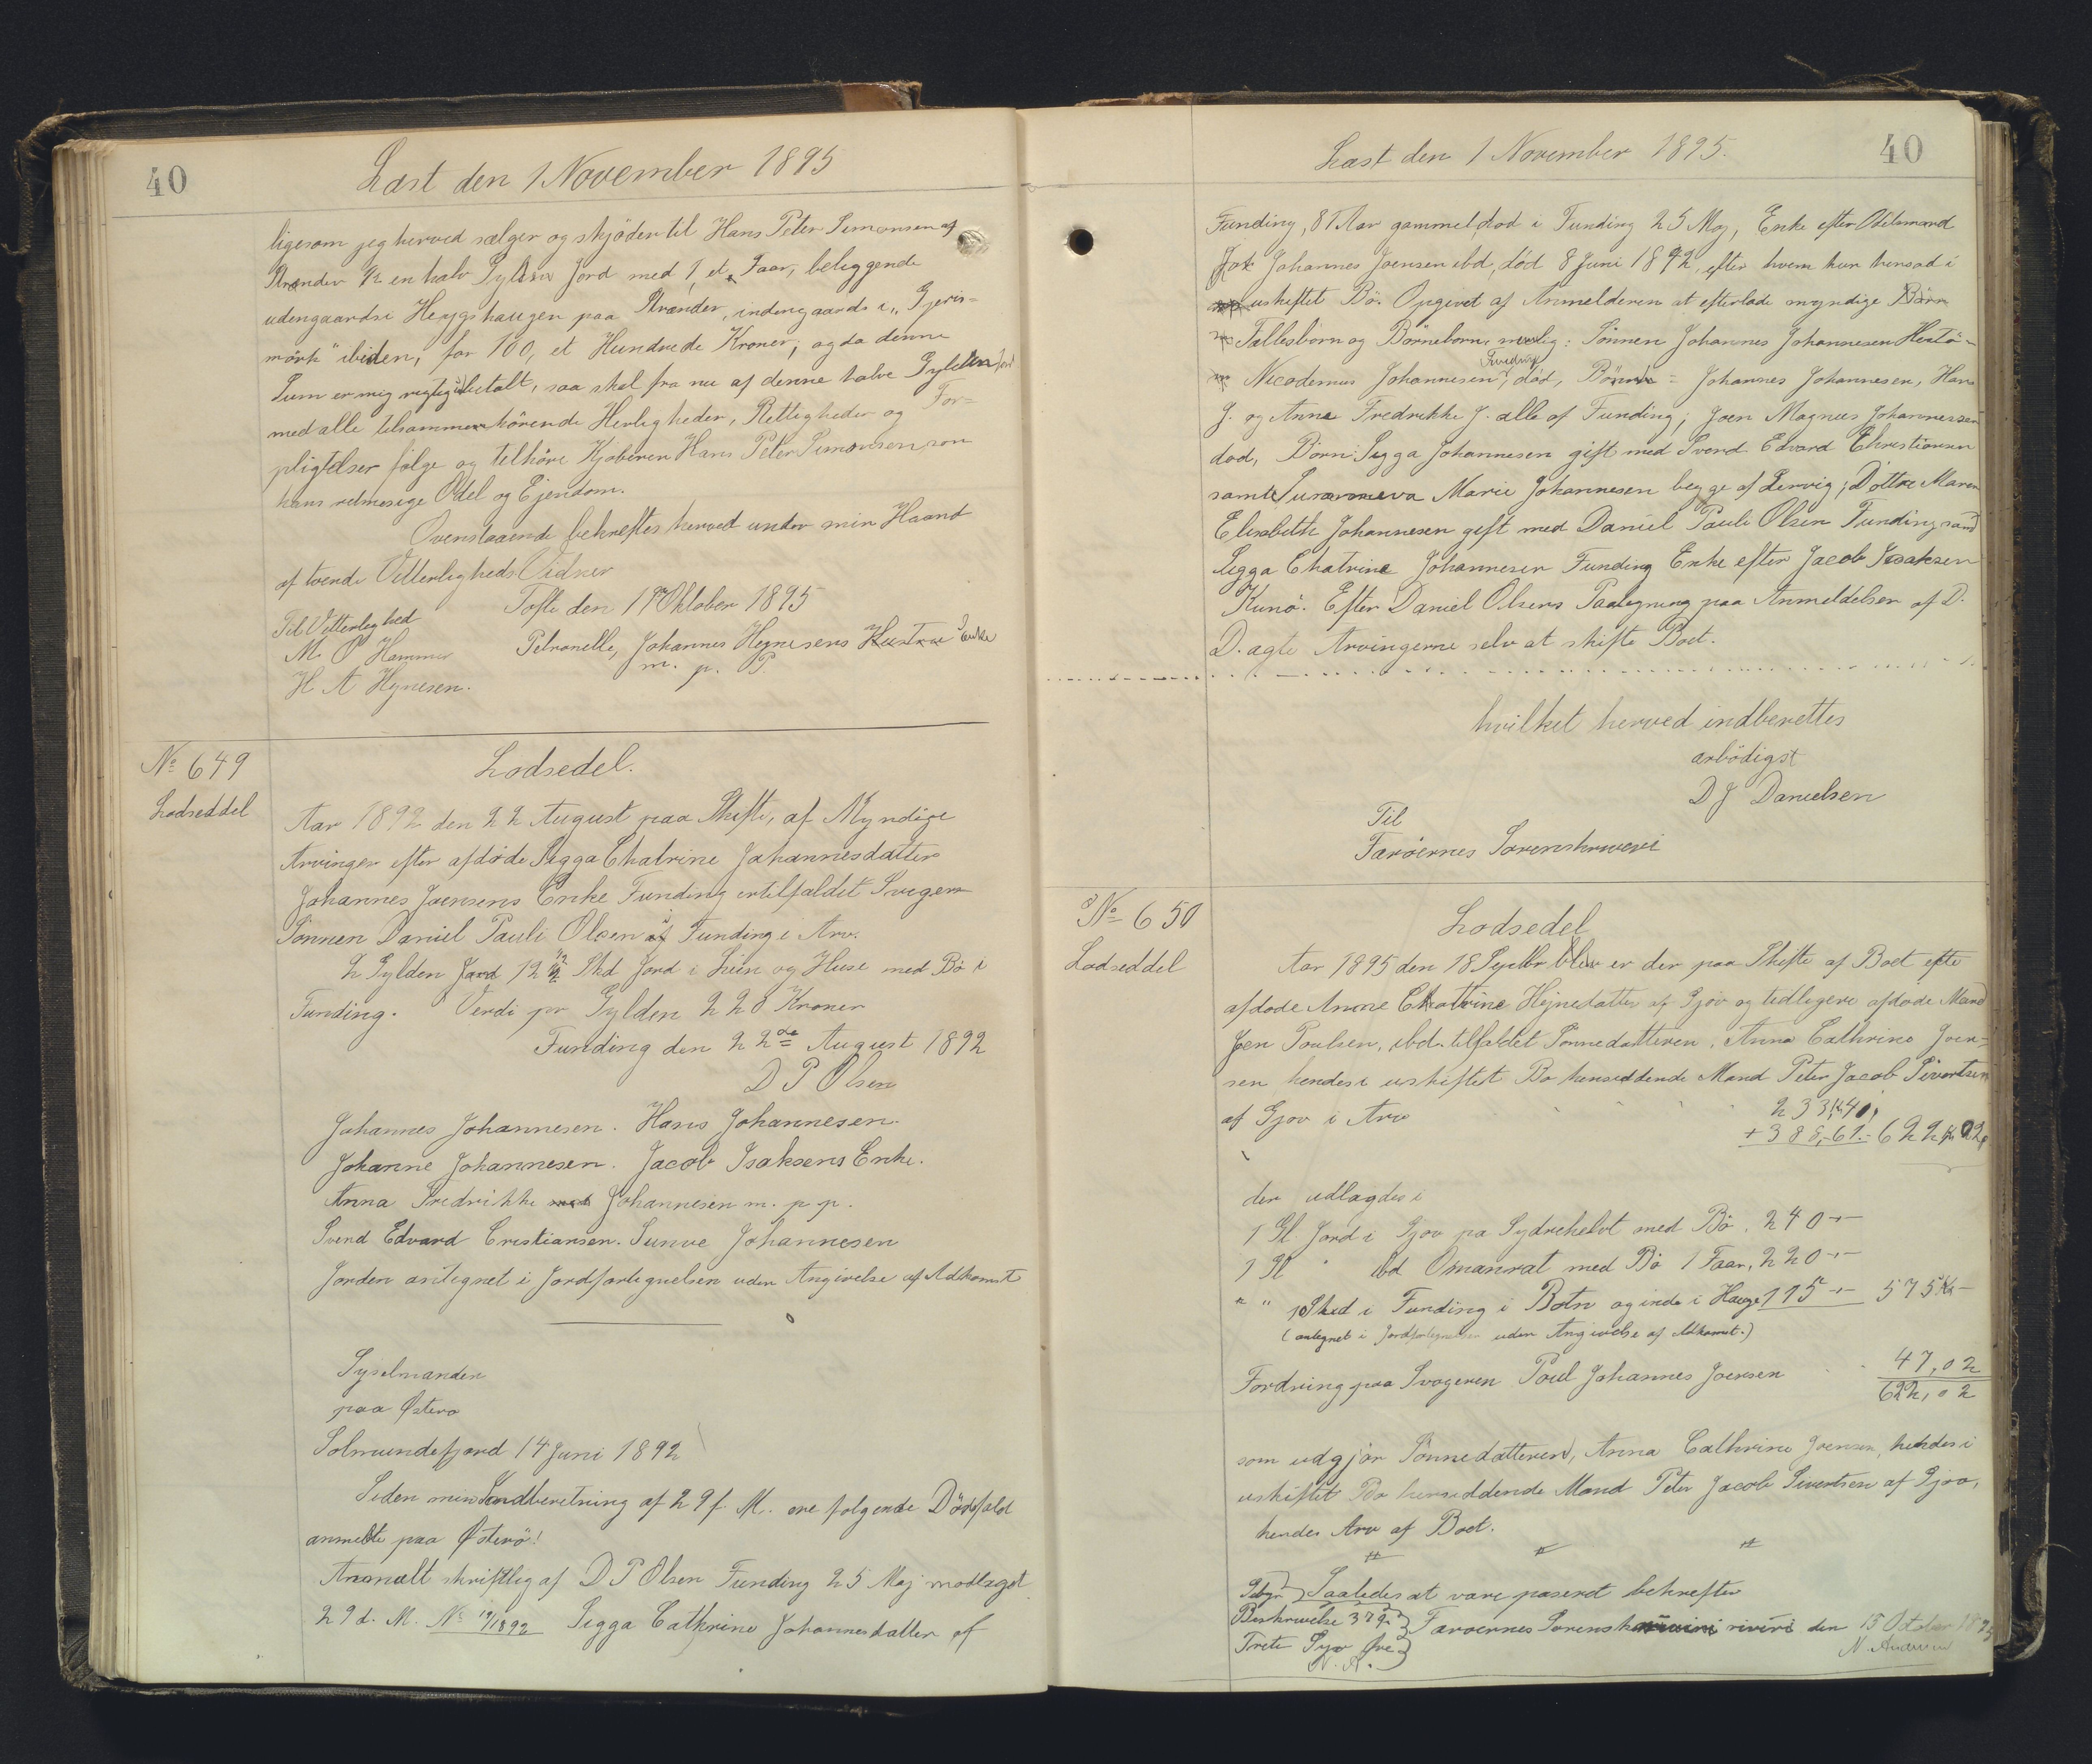 40
Læst den 1 November 1895
ligesom jeg herved sælger og skjöder til Hans Peter Simonsen af
Strænder ½ en halv Gylden Jord med 1, et, Faar, beliggende
udengaards i Heygshaugen paa Strænder, indengaards i "Gjeris=
mörk" ibiden, for 100, et Hundrede Kroner, og da denne
Sum er mig rigtig betalt, saa skal fra nu af denne halve Gylden Jord
med alle tilsammenhörende Herligheder, Rettigheder og For=
pligtelser fölge og tilhöre Kjöberen Hans Peter Simonsen, som
hans retmæsige Odel og Ejendom.
Ovenstaaende bekræftes herved under min Haand
af tvende Vitterligheds Vidner
Tofte den 1ste Oktober 1895
Til Vitterlighed
M. P Hammer
Petronelle, Johannes Heynesens Hustrue Enke
m. p. P.
H A Hynesen.
No 649
Lodseddel
Lodsedel.
Aar 1892 den 22 August paa Skifte, af Myndige
Arvinger efter afdöde Sigga Chatrine Johannesdatter
Johannes Joensens Enke Funding er tilfaldet Sviger
Sönnen Daniel Pauli Olsen af Funding i Arv.
2 Gylden Jord 12 ½ Skd Jord i Liin og Huse med Bö i
Funding. Verdi pr Gylden 220 Kroner
Funding den 22de August 1892
D P Olsen
Johannes Johannesen. Hans Johannesen.
Johanne Johannesen. Jacob Isaksens Enke.
Anna Fredrikke Johannesen m. p. p.
Svend Edvard Cristiansen. Sunve Johannesen
Jorden antegnet i Jordfortegnelsen uden Angivelse af Adkomst
Syselmanden
paa Østerø
Solmundefjord 14 Juni 1892
Siden min Indberetning af 29 f. M. ere folgende Dödsfald
anmeldte paa Østerö!
Anmelt skriftlig af D P Olsen Funding 25 Maj modtaget
29 d. M. No 19/1892 Sigga Cathrine Johannesdatter af
Læst den 1 November 1895.
40
Funding, 81 Aar gammel, död i Funding 25 Maj, Enke efter Odelsmand
Johannes Joensen ibd, död 8 Juni 1892, efter hvem hun hensad i
uskiftet Bö. Opgivet af Anmelderen at efterlade myndige Börn
Fællesbörn og Börnebörn, nemlig: Sönnen Johannes Johannesen Hestö=
Nicodemus Johannesen, Funding, död, Börn = Johannes Johannesen, Hans
J. og Anna Fredrikke J. alle af Funding; Joen Magnus Johannessen
död, Börn: Sigga Johannesen gift med Svend Edvard Christiansen
samt Susanneva Marie Johannesen begge af Lervig; Döttre Maren
Elisabeth Johannesen gift med Daniel Pauli Olsen Funding samt
Sigga Chatrine Johannesen Funding Enke efter Jacob Isaksen
Kunö. Efter Daniel Olsens Paategning paa Anmeldelsen af D.
D. agte Arvingerne selv at skifte Boet.
hvilket herved indberettes
ærbödigst
D J Danielsen
Til
Færöernes Sorenskriveri
No 650
Lodseddel
Lodsedel
Aar 1895 den 18 Septbr er der paa Skifte af Boet efte
afdöde Anne Chatrine Hejnesdatter af Gjov og tidligere afdöde Mand
Joen Poulsen, ibd. tilfaldet Sönnedatteren, Anna Cathrine Joen=
sen hendes i uskiftet Bo hensiddende Mand Peter Jacob Sivertsen
af Gjov i Arv 233 Kr 41
+ 388,-61.- 622 Kr 02
der udlagdes i
1 Gl Jord i Gjov pa Sydrehelvt med Bö. 240 -"-
1 Gl " ibd Omanrat med Bö 1 Faar, 220 -"-
" " 10 Skd i Funding i Botn og inde i Hauge 115 -"- 575 Kr -
(antegnet i Jordfortegnelsen uden Angivelse af Adkomst.)
Fordring paa Svogeren Poul Johannes Joensen 47,02
622,02
som udgjör Sönnedatteren, Anna Cathrine Joensen, hendes i
uskiftet Bo hensiddende Mand Peter Jacob Sivertsen af Gjov,
hendes Arv af Boet.
Gebyr Saaledes at være paseret bekræfter
Beskrivelse 37 Færøernes Sorenskriveri den 15 October 1895
Treti Syv Øre
N. A.
N. Andersen